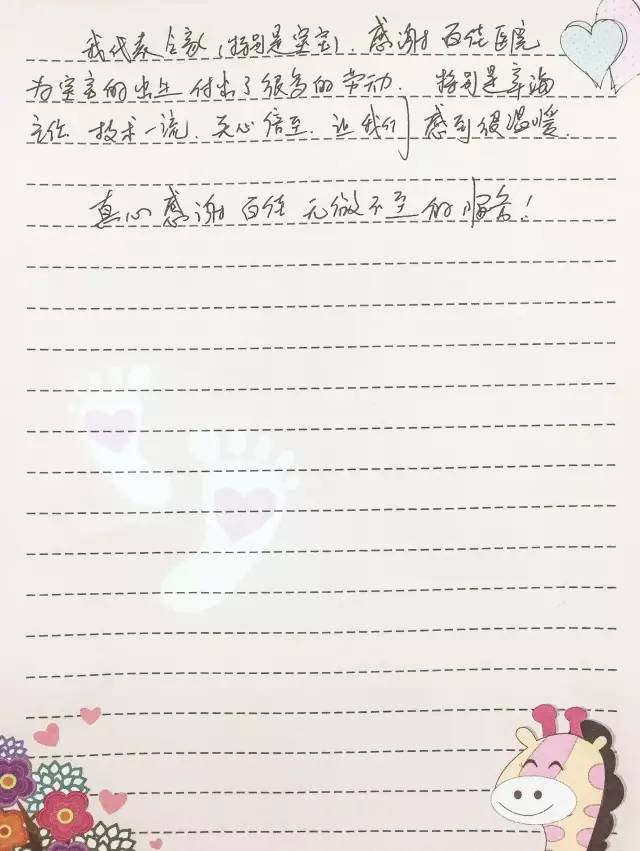 我代表全家（特别是宝宝），感谢百佳医院
为宝宝的出生付出了很多的劳动，特别是辛海
主任 技术一流，关心倍至，让我们感到很温暖。
真心感谢百佳无微不至的服务！